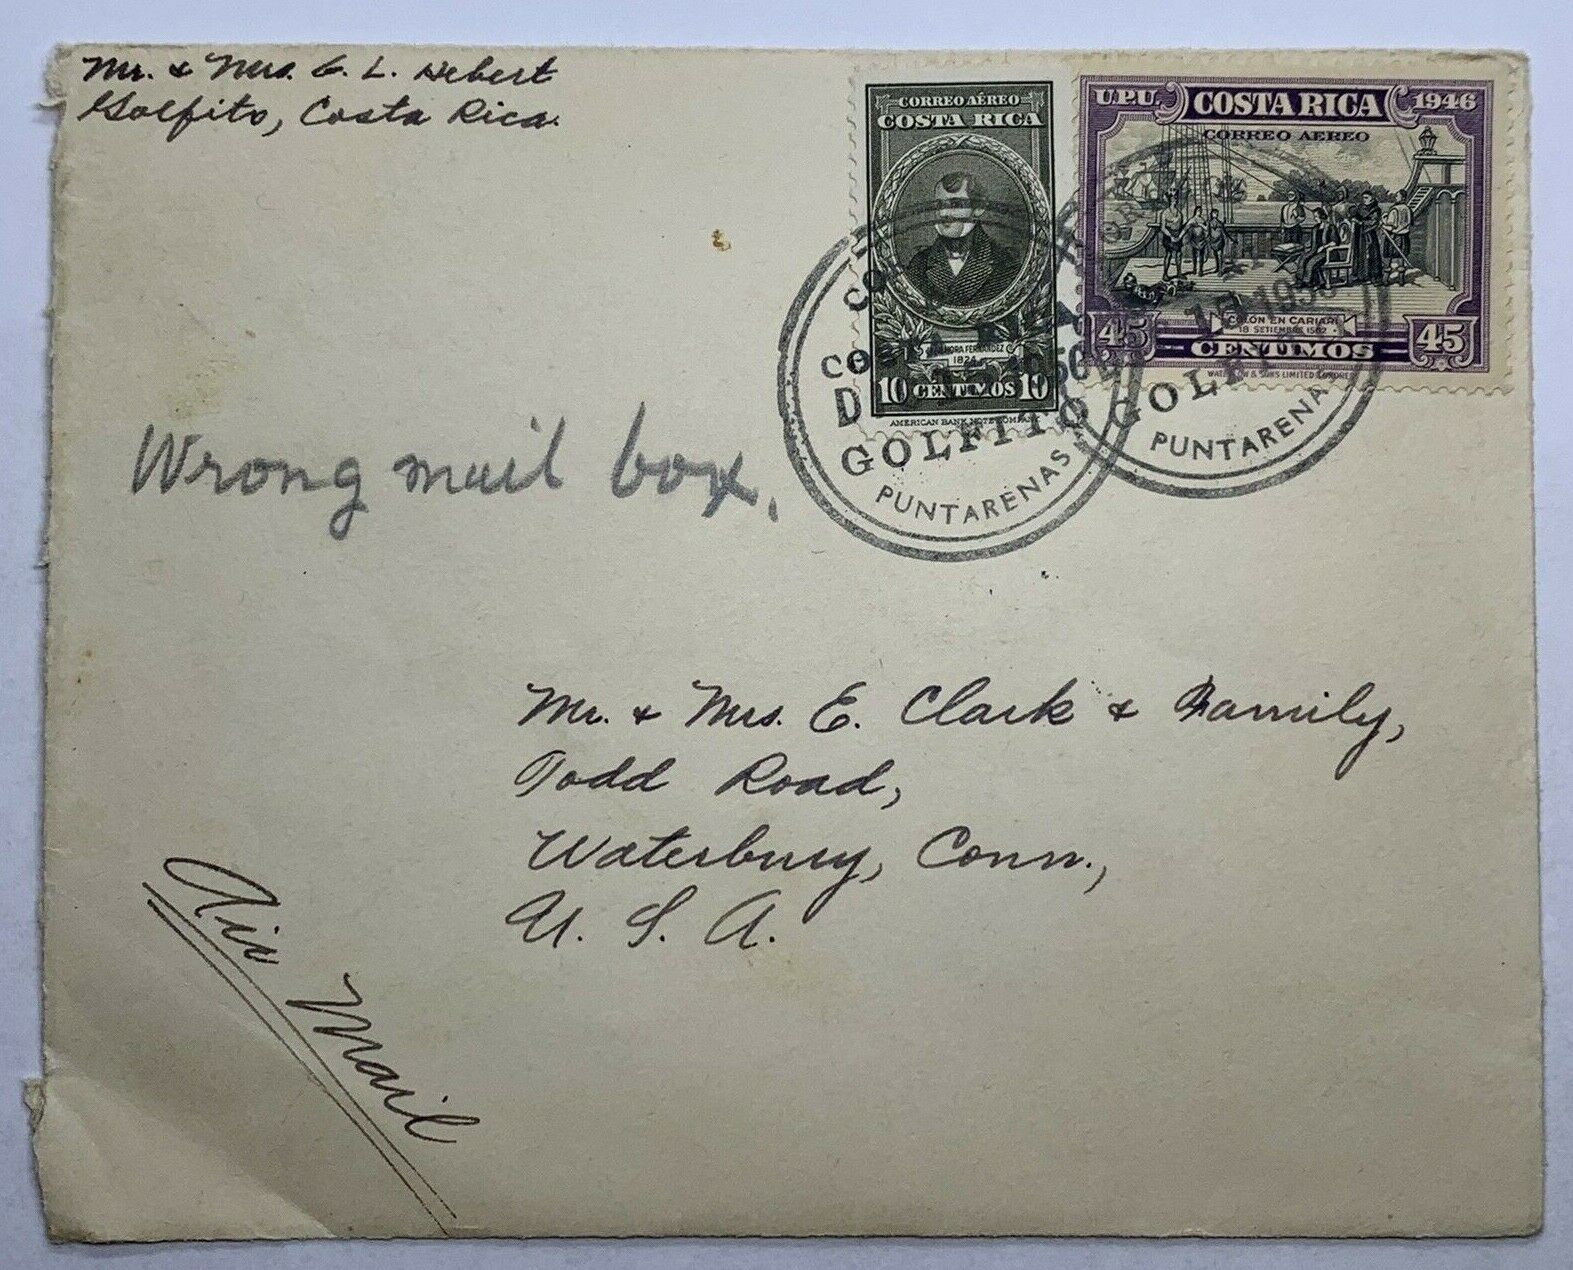 Mr. & Mrs. E. L. Hebert
Golfito, Costa Rica.
CORREO AÉREO
COSTA RICA
MORA FERNANDEZ
1824
10 CENTIMOS 10
AMERICAN BANK NOTE COMPANY
U.P.U. COSTA RICA 1946
CORREO AEREO
COLON EN CARIARI
18 SETIEMBRE 1502
45 CENTIMOS 45
GOLFITO
PUNTARENAS
1950
GOLFITO
PUNTARENAS
Wrong mail box.
Mr. & Mrs. E. Clark & Family,
Todd Road,
Waterbury, Conn.,
U. S. A.
Air Mail